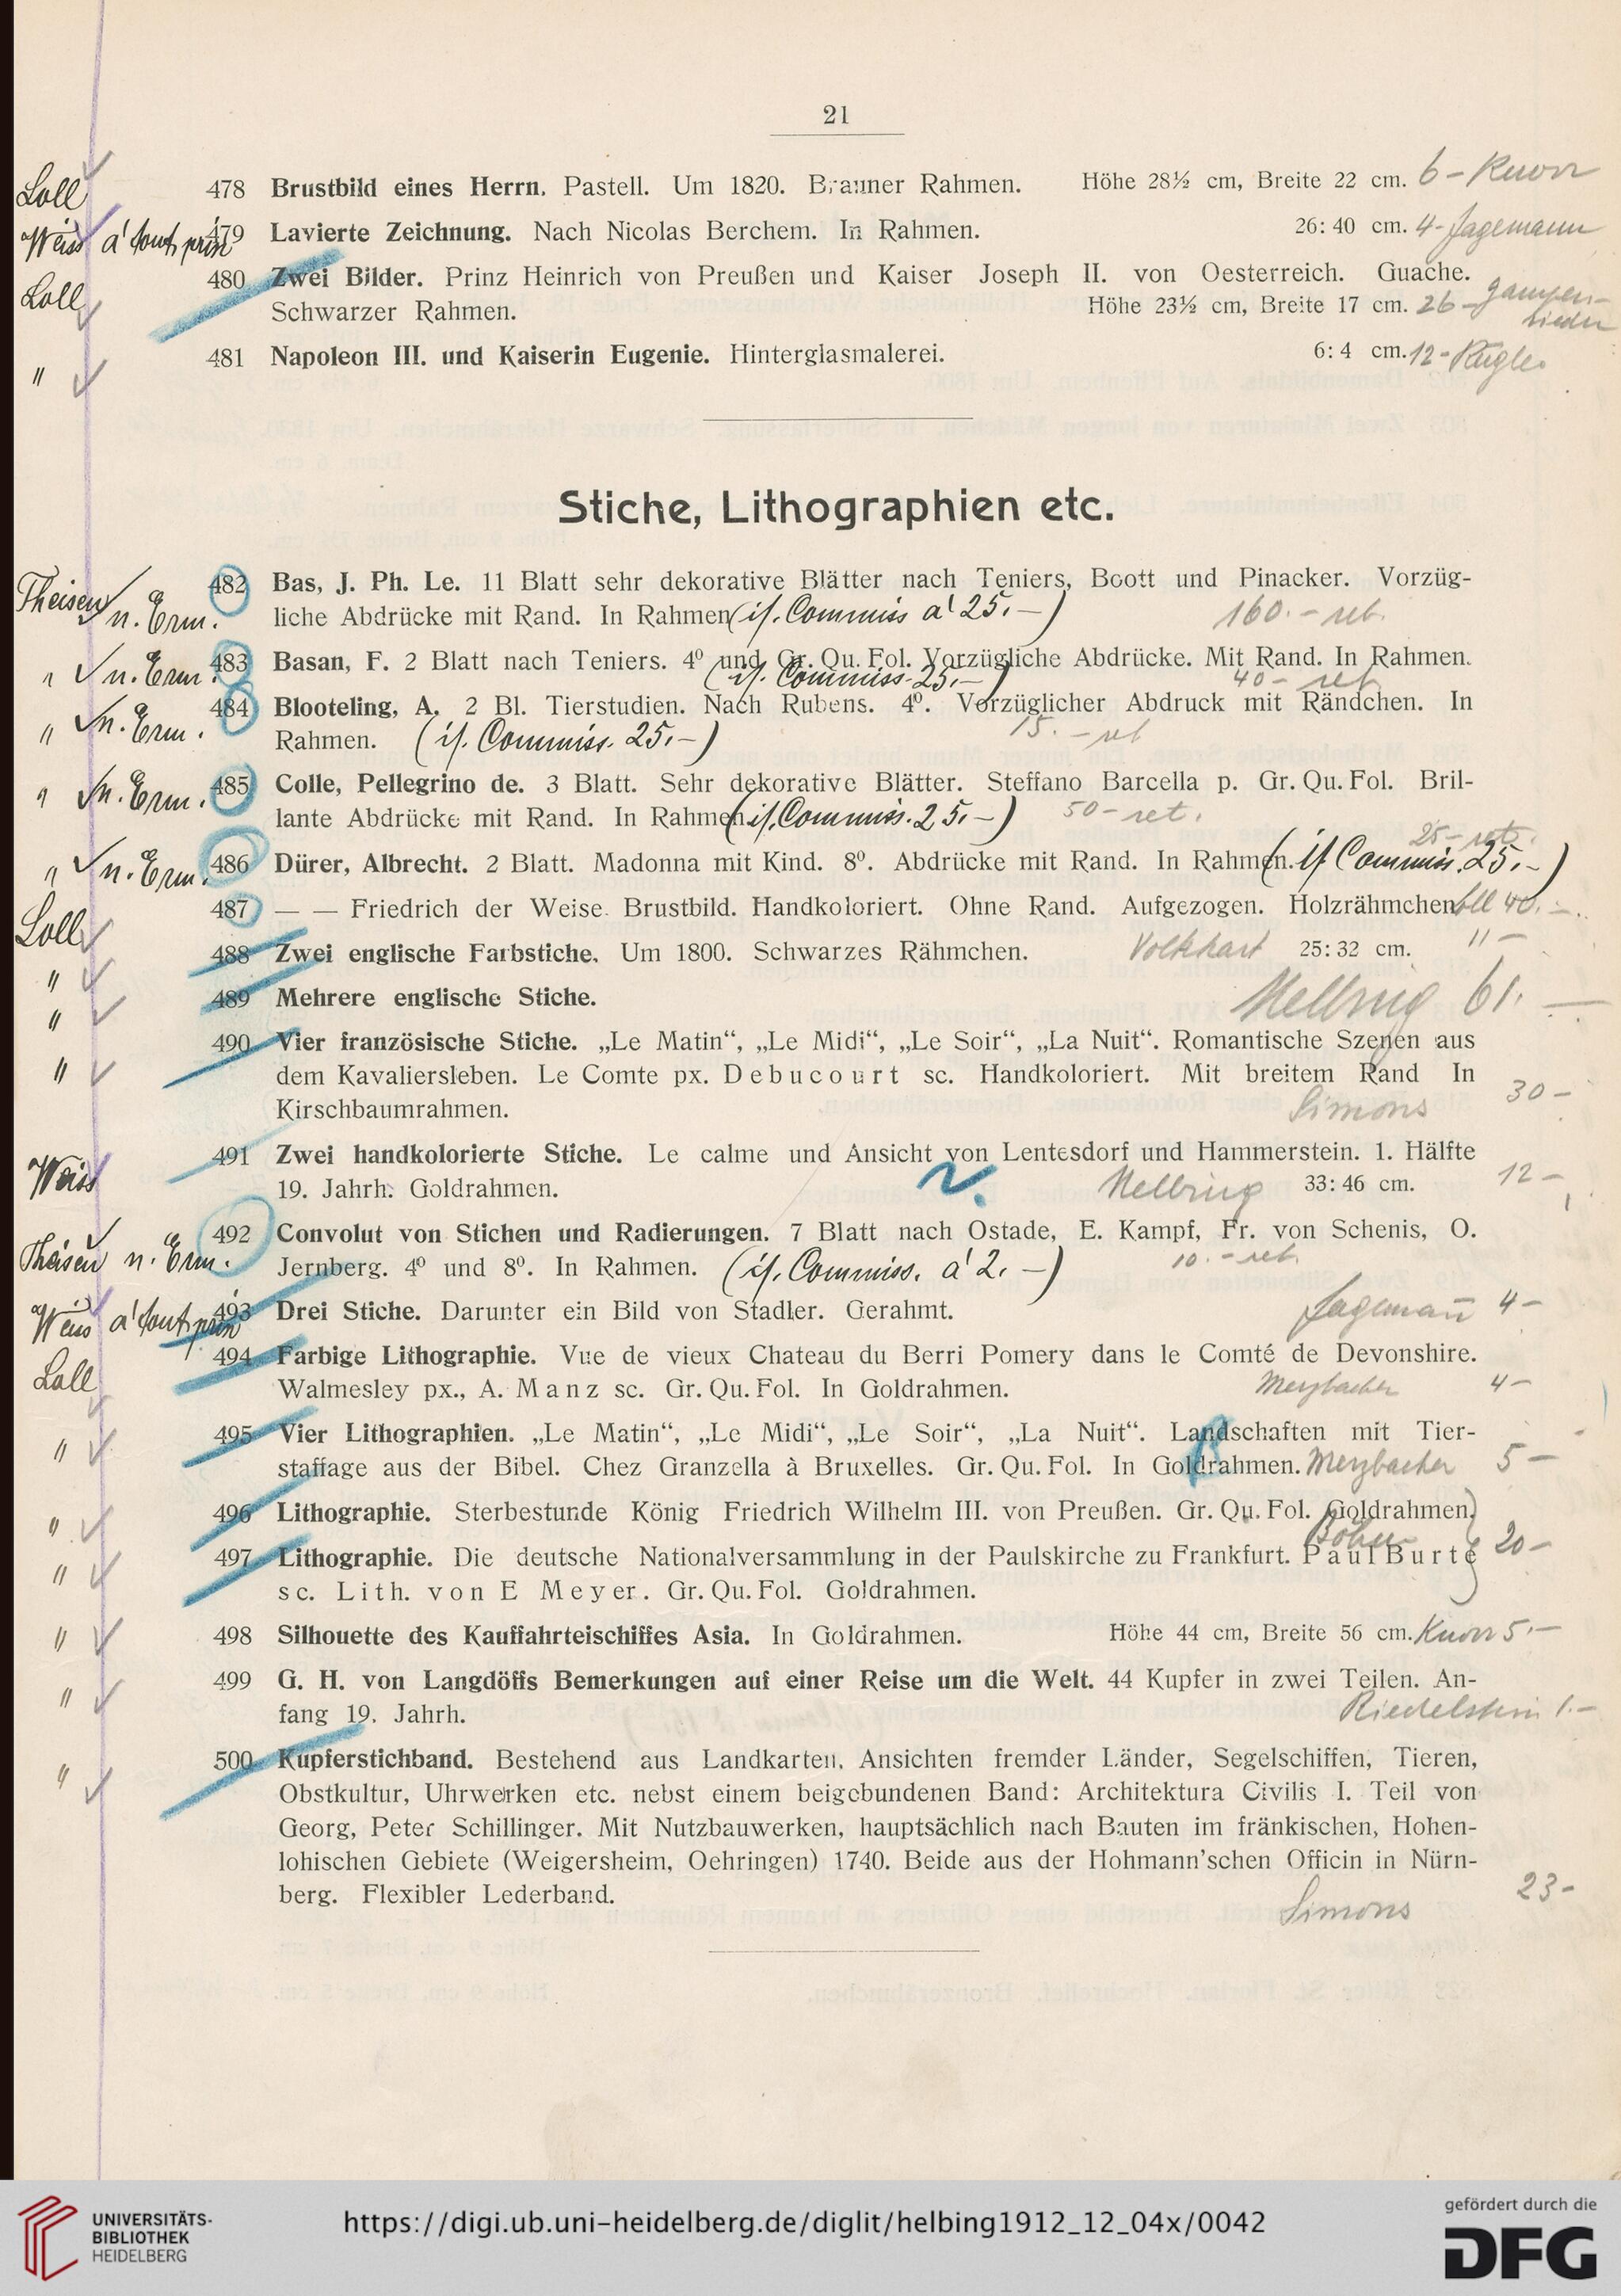 21
Loll 478 Brustbild eines Herrn. Pastell. Um 1820. Brauner Rahmen. Höhe 28½ cm, Breite 22 cm. 6 – Knorr
Weiss à tout prix 479 Lavierte Zeichnung. Nach Nicolas Berchem. In Rahmen. 26:40 cm. 4 - Jagemann
Loll 480 Zwei Bilder. Prinz Heinrich von Preußen und Kaiser Joseph II. von Oesterreich. Guache.
Schwarzer Rahmen. Höhe 23½ cm, Breite 17 cm. 26 –
" 481 Napoleon III. und Kaiserin Eugenie. Hinterglasmalerei. 6:4 cm. 12 -
Stiche, Lithographien etc.
Theisen n. Erm. 482 Bas, J. Ph. Le. 11 Blatt sehr dekorative Blätter nach Teniers, Boott und Pinacker. Vorzüg-
liche Abdrücke mit Rand. In Rahmen (if. Commiss à 25.–) 160.– ret.
" n. Erm. 483 Basan, F. 2 Blatt nach Teniers. 4⁰ und Gr. Qu. Fol. Vorzügliche Abdrücke. Mit Rand. In Rahmen.
(if. Commiss. 25.–) 40 – ret.
" n. Erm. 484 Blooteling, A. 2 Bl. Tierstudien. Nach Rubens. 4⁰. Vorzüglicher Abdruck mit Rändchen. In
Rahmen. (if. Commiss. 25.–) 15.– ret
" n. Erm. 485 Colle, Pellegrino de. 3 Blatt. Sehr dekorative Blätter. Steffano Barcella p. Gr. Qu. Fol. Bril-
lante Abdrücke mit Rand. In Rahmen (if. Commiss. 25.–) 50 – ret.
25 – ret.
" n. Erm. 486 Dürer, Albrecht. 2 Blatt. Madonna mit Kind. 8⁰. Abdrücke mit Rand. In Rahmen. (if Commiss. 25.–)
Loll 487 — — Friedrich der Weise. Brustbild. Handkoloriert. Ohne Rand. Aufgezogen. Holzrähmchen. 40.–
" 488 Zwei englische Farbstiche. Um 1800. Schwarzes Rähmchen. Volkhart 25:32 cm. 11 –
" 489 Mehrere englische Stiche. Helbing 61.–
" 490 Vier französische Stiche. „Le Matin“, „Le Midi“, „Le Soir“, „La Nuit“. Romantische Szenen aus
dem Kavaliersleben. Le Comte px. Debucourt sc. Handkoloriert. Mit breitem Rand In
Kirschbaumrahmen. Simons 30 –
Weiss 491 Zwei handkolorierte Stiche. Le calme und Ansicht von Lentesdorf und Hammerstein. 1. Hälfte
19. Jahrh. Goldrahmen. Helbing 33:46 cm. 12 –
Theisen n. Erm. 492 Convolut von Stichen und Radierungen. 7 Blatt nach Ostade, E. Kampf, Fr. von Schenis, O.
Jernberg. 4⁰ und 8⁰. In Rahmen. (if. Commiss. à 2.–) 10.– ret.
Weiss à tout prix 493 Drei Stiche. Darunter ein Bild von Stadler. Gerahmt. Jagemann̄ 4 –
Loll 494 Farbige Lithographie. Vue de vieux Chateau du Berri Pomery dans le Comté de Devonshire.
Walmesley px., A. Manz sc. Gr. Qu. Fol. In Goldrahmen. Merzbacher 4 –
" 495 Vier Lithographien. „Le Matin“, „Le Midi“, „Le Soir“, „La Nuit“. Landschaften mit Tier-
staffage aus der Bibel. Chez Granzella à Bruxelles. Gr. Qu. Fol. In Goldrahmen. Merzbacher 5 –
" 496 Lithographie. Sterbestunde König Friedrich Wilhelm III. von Preußen. Gr. Qu. Fol. Goldrahmen.
" 497 Lithographie. Die deutsche Nationalversammlung in der Paulskirche zu Frankfurt. Paul Burte 20 –
sc. Lith. von E Meyer. Gr. Qu. Fol. Goldrahmen.
" 498 Silhouette des Kauffahrteischiffes Asia. In Goldrahmen. Höhe 44 cm, Breite 56 cm. Knorr 5.–
" 499 G. H. von Langdöffs Bemerkungen auf einer Reise um die Welt. 44 Kupfer in zwei Teilen. An-
fang 19. Jahrh. Riedelstein 1.–
" 500 Kupferstichband. Bestehend aus Landkarten, Ansichten fremder Länder, Segelschiffen, Tieren,
Obstkultur, Uhrwerken etc. nebst einem beigebundenen Band: Architektura Civilis I. Teil von
Georg, Peter Schillinger. Mit Nutzbauwerken, hauptsächlich nach Bauten im fränkischen, Hohen-
lohischen Gebiete (Weigersheim, Oehringen) 1740. Beide aus der Hohmann'schen Officin in Nürn-
berg. Flexibler Lederband. Simons 23 –
UNIVERSITÄTS-
BIBLIOTHEK
HEIDELBERG
https://digi.ub.uni-heidelberg.de/diglit/helbing1912_12_04x/0042
gefördert durch die
DFG